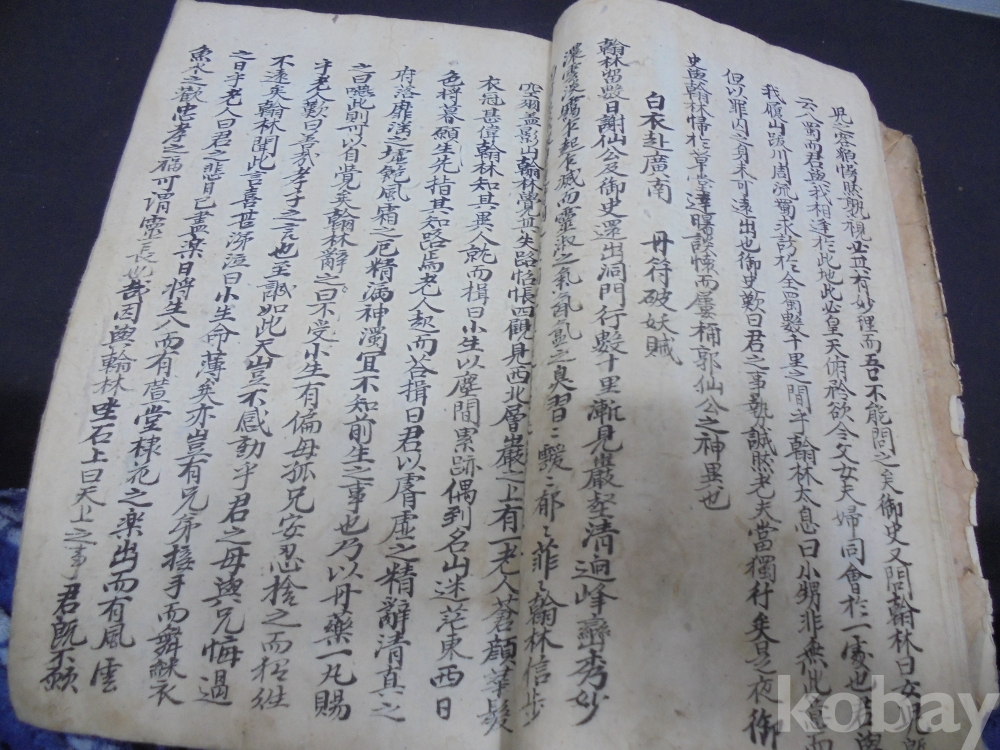 見之容貌惝然孰視此豈有妙理而吾不能問之矣御史又問翰林曰女兒
云入蜀而君與我相逢於此地此必皇天俯矜欲令父女夫婦同會於一處也
我願山跋川周流蜀水訪於全蜀數千里之間乎翰林太息曰小甥非無此意而
但以罪內之身未可遠出也御史歎曰君之事勢誠然老夫當獨行矣是夜御
史與翰林宿於草堂達曙談懷而屢稱郭仙公之神異也
白衣赴廣南 丹符破妖賊
翰林留數日謝仙公及御史還出洞門行數十里漸見巖壑清迥峰巒秀妙
之氣氤氳之臭習〻靉〻郁〻菲〻翰林信步
翰林覺其失路怊悵四觀見西北層巖之上有一老人蒼顏華髮
衣冠甚偉翰林知其異人就而揖曰小生以塵間累跡偶到名山迷茫東西日
色將暮願生先指其知路焉老人起而答揖曰君以膚虛之精辭清真之
府落靡滿之墟飽風霜之厄精漏神濁宜不知前生之事也乃以丹藥一丸賜
之曰嚥此則可以自覺矣翰林辭之曰不受小生有偏母孤兄安忍捨之而
乎老人歎曰善哉孝子之言也至誠如此天豈不感動乎君之母與兄悔過
不遠矣翰林聞此言喜甚涕泣曰小生命薄矣亦豈有兄弟接手而舞綵衣
之日乎老人曰君之悲日已盡樂日將生入而有萱堂棣花之樂出而有風雲
魚水之歡忠孝之福可謂靈長也哉因與翰林坐石上曰天上之事君旣不願
kobay